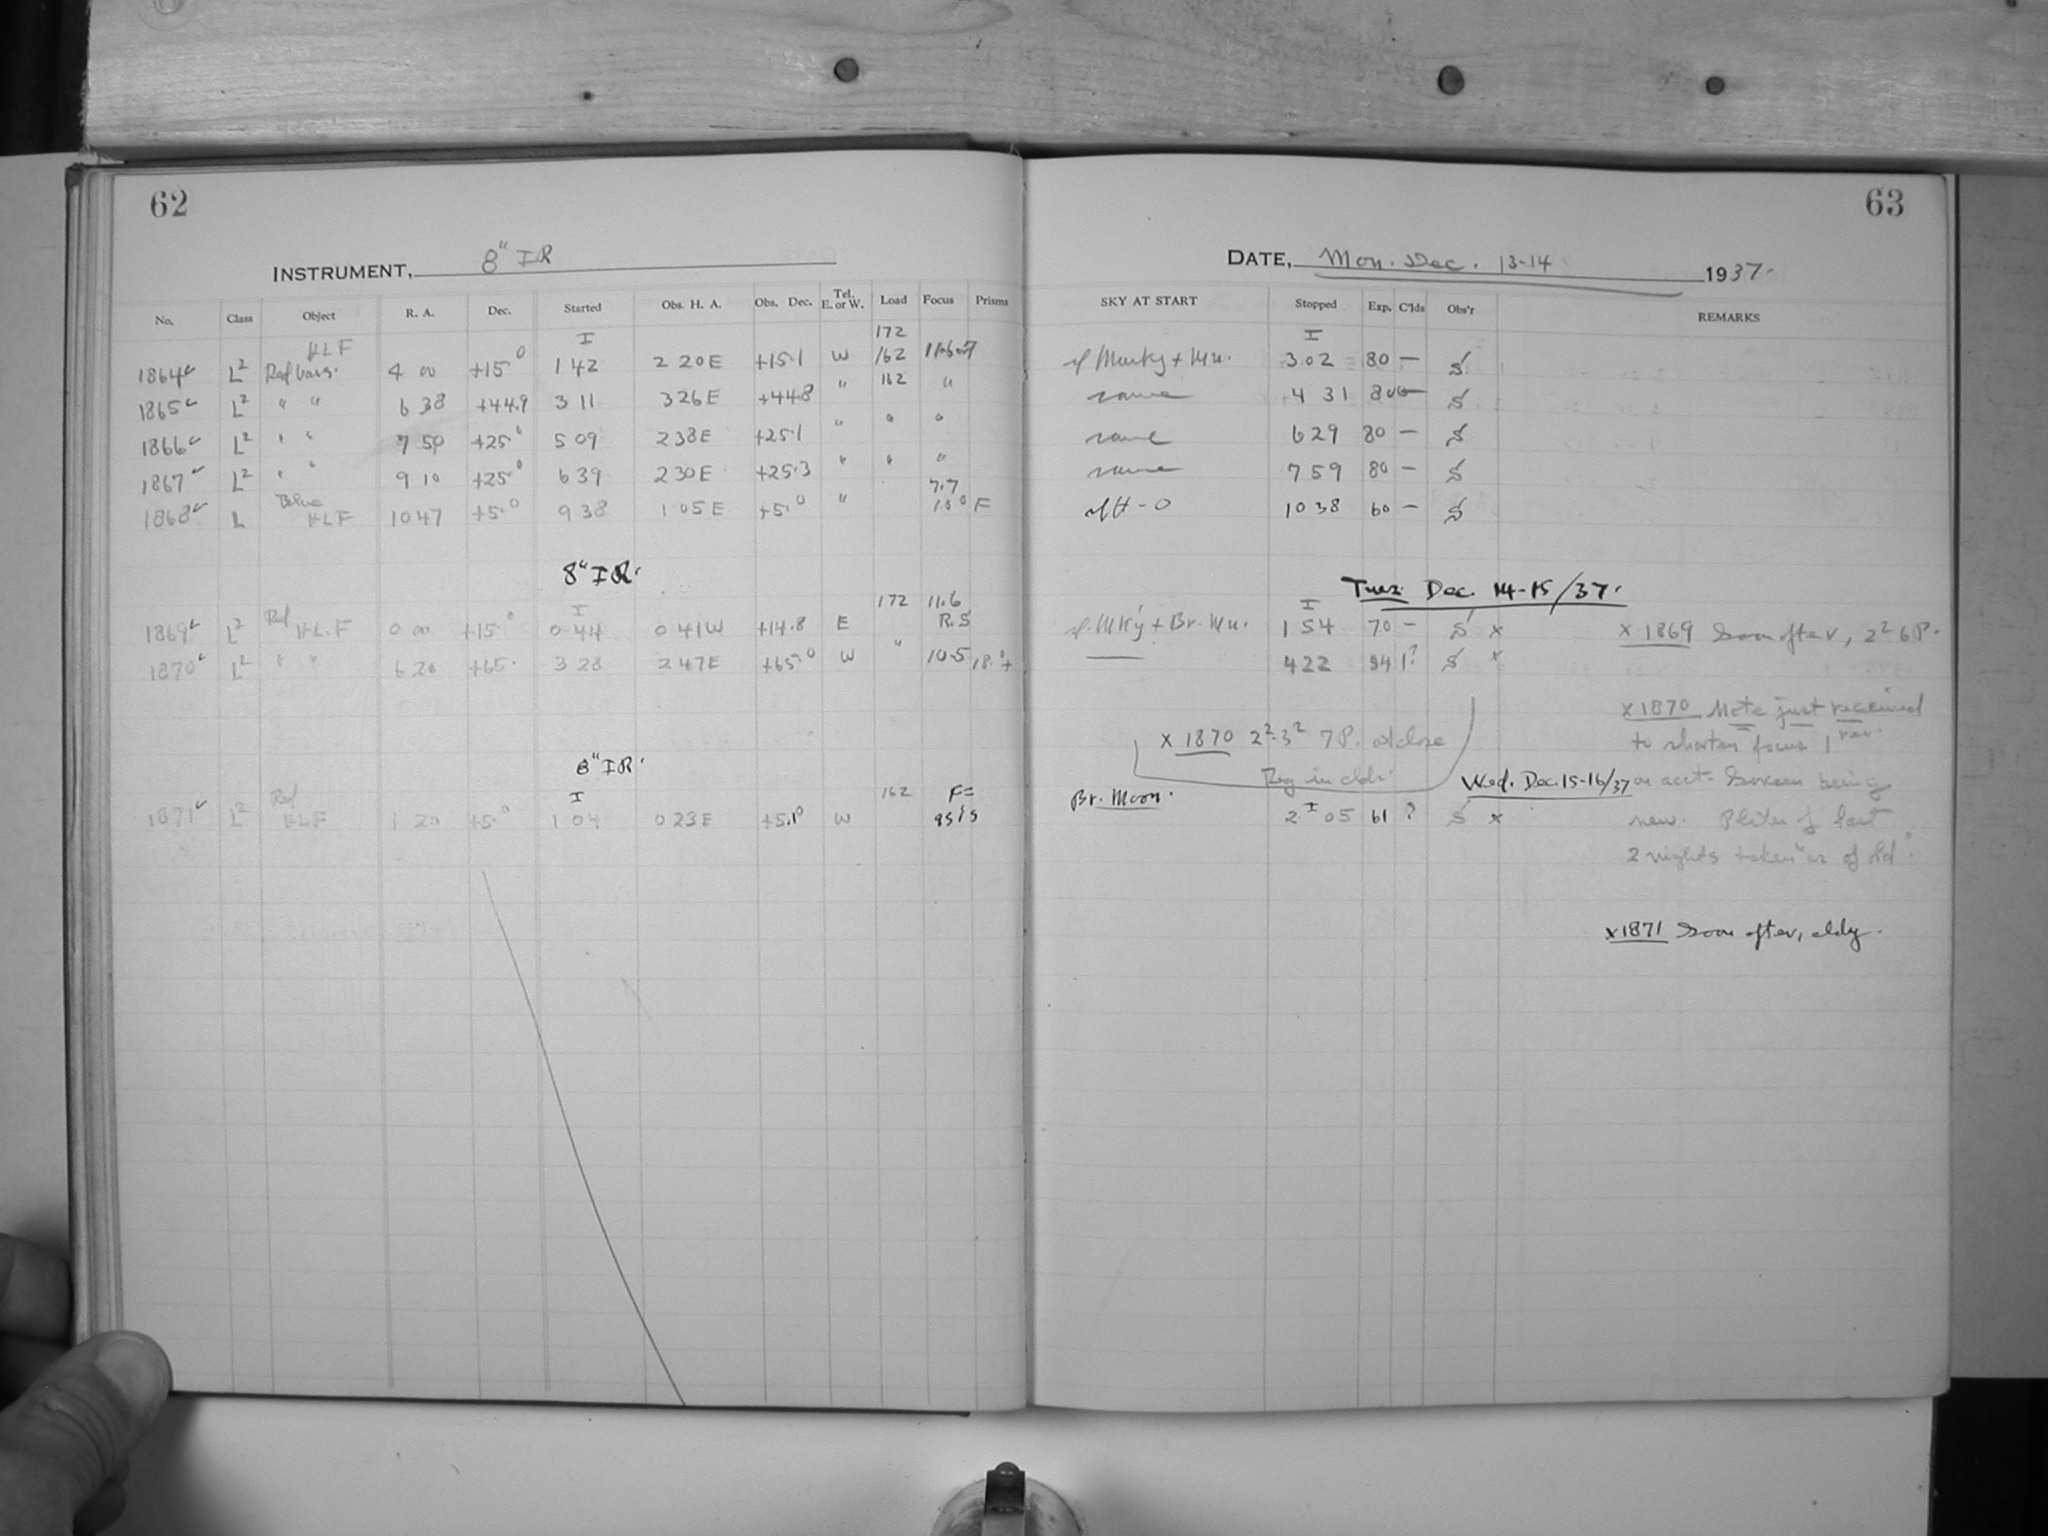 62
INSTRUMENT, 8" IR
No. Class Object R. A. Dec. Started Obs. H. A. Obs. Dec. Tel. E. or W. Load Focus Prisms
I 172
1864 L² Red HLF 4 00 +15° 1 42 2 20 E +15.1 W 162
1865 L² " " 6 38 +44.9 3 11 3 26 E +44.8 " 162 "
1866 L² " " 7 50 +25° 5 09 2 38 E +25.1 " " "
1867 L² " " 9 10 +25° 6 39 2 30 E +25.3 " " "
7.7
1868 L Blue HLF 10 47 +5.0 9 38 1 05 E +5.0 " 10.0 F
8" IR.
I 172 11.6
1869 L² Red HLF 0 00 +15.0 0 44 0 41 W +14.8 E R.S
1870 L² " " 6 20 +65. 3 28 2 47 E +65.0 W " 10.5
8" IR.
I 162 F=
1871 L² Red HLF 1 20 +5.0 1 04 0 23 E +5.0 W
63
DATE, Mon. Dec. 13-14 1937.
SKY AT START Stopped Exp. C'lds Obs'r REMARKS
I
Murky + Mn. 3 02 80 — S
same 4 31 80 — S
same 6 29 80 — S
same 7 59 80 — S
10 38 60 — S
Tues. Dec. 14-15/37.
I
Mky + Br. Mn. 1 54 70 — S x x 1869 Soon after, 2² 6P.
4 22 54 1? S x
x 1870 Note just received
to shorten focus 1 rev.
x 1870 2²-3² 7P. at close
Beg in clds.
Wed. Dec. 15-16/37 on acct. Screen being
Br. Moon. 2 I 05 61 ? S x new. Plates of last
2 nights taken "as of old".
x 1871 Soon after, cldy.